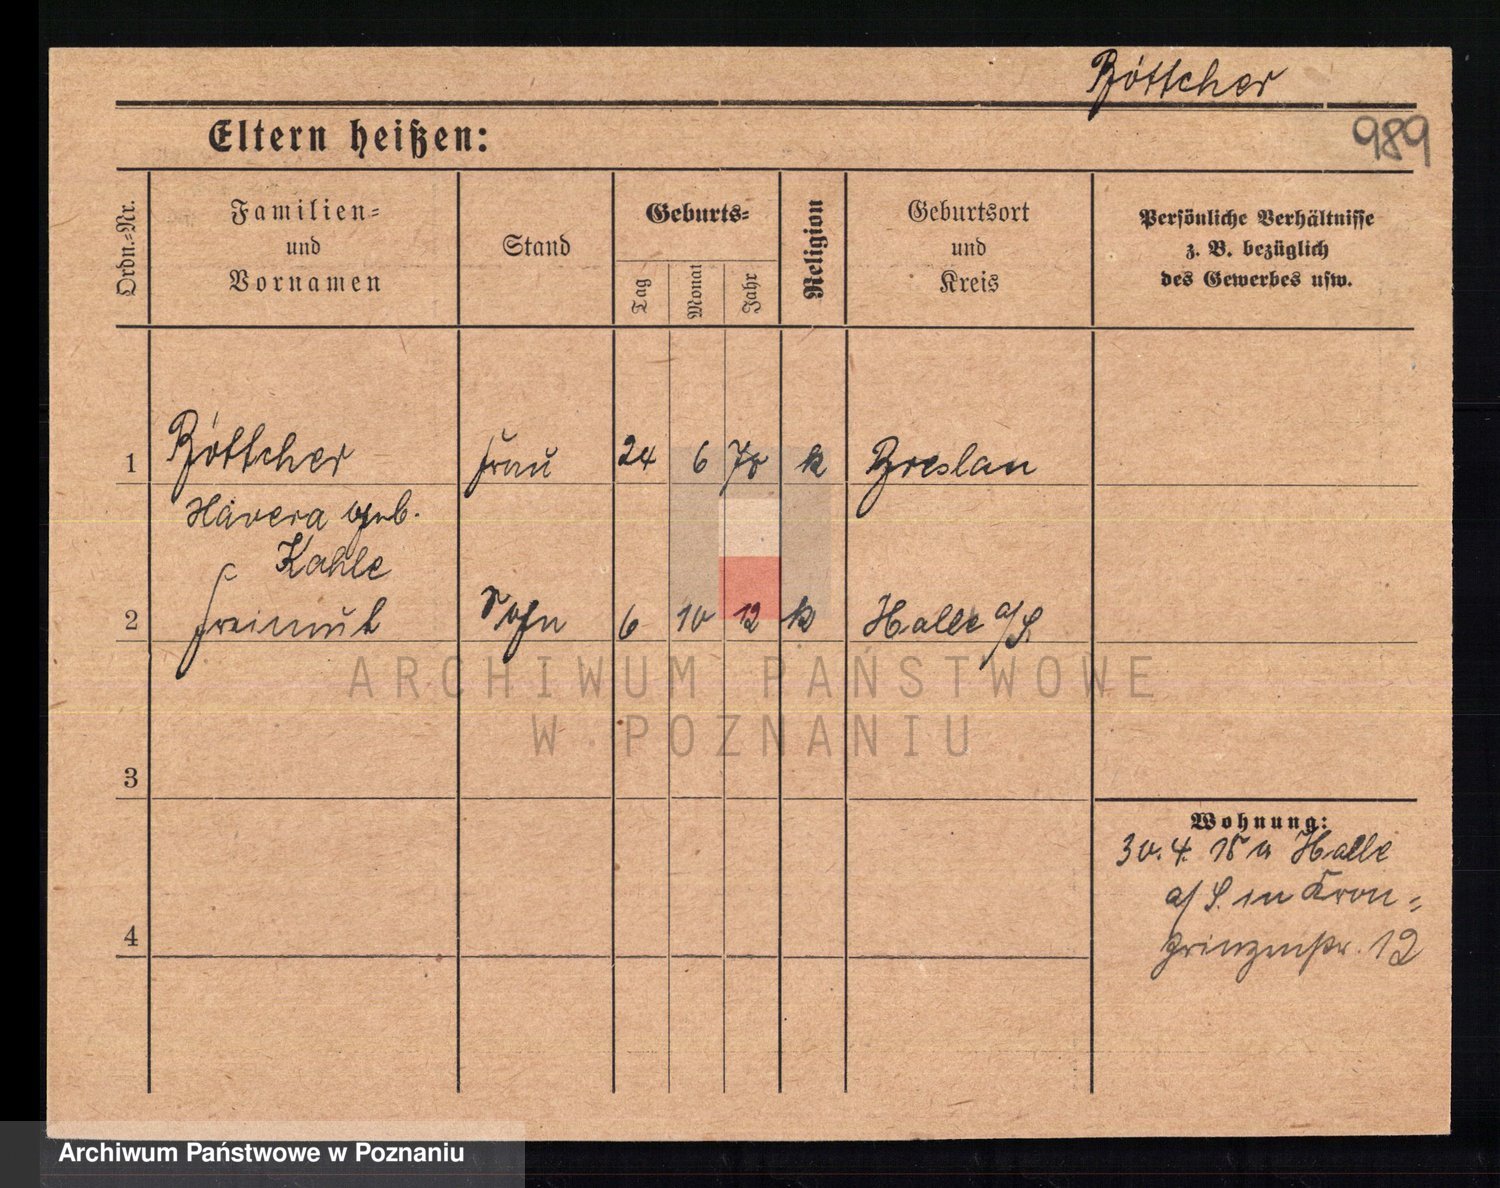 Böttcher
989
Eltern heißen:
Ordn.-Nr.
Familien-
und
Vornamen
Stand
Geburts-
Tag
Monat
Jahr
Religion
Geburtsort
und
Kreis
Persönliche Verhältnisse
z. B. bezüglich
des Gewerbes usw.
1 Böttcher Frau 24 6 70 k Breslau
geb.
Kahle
2 Sohn 6 10 12 k Halle a/S.
ARCHIWUM PAŃSTWOWE
W POZNANIU
3
Wohnung:
30.4. 15 n Halle
a/S. in Kron-
prinzenstr. 12
4
Archiwum Państwowe w Poznaniu